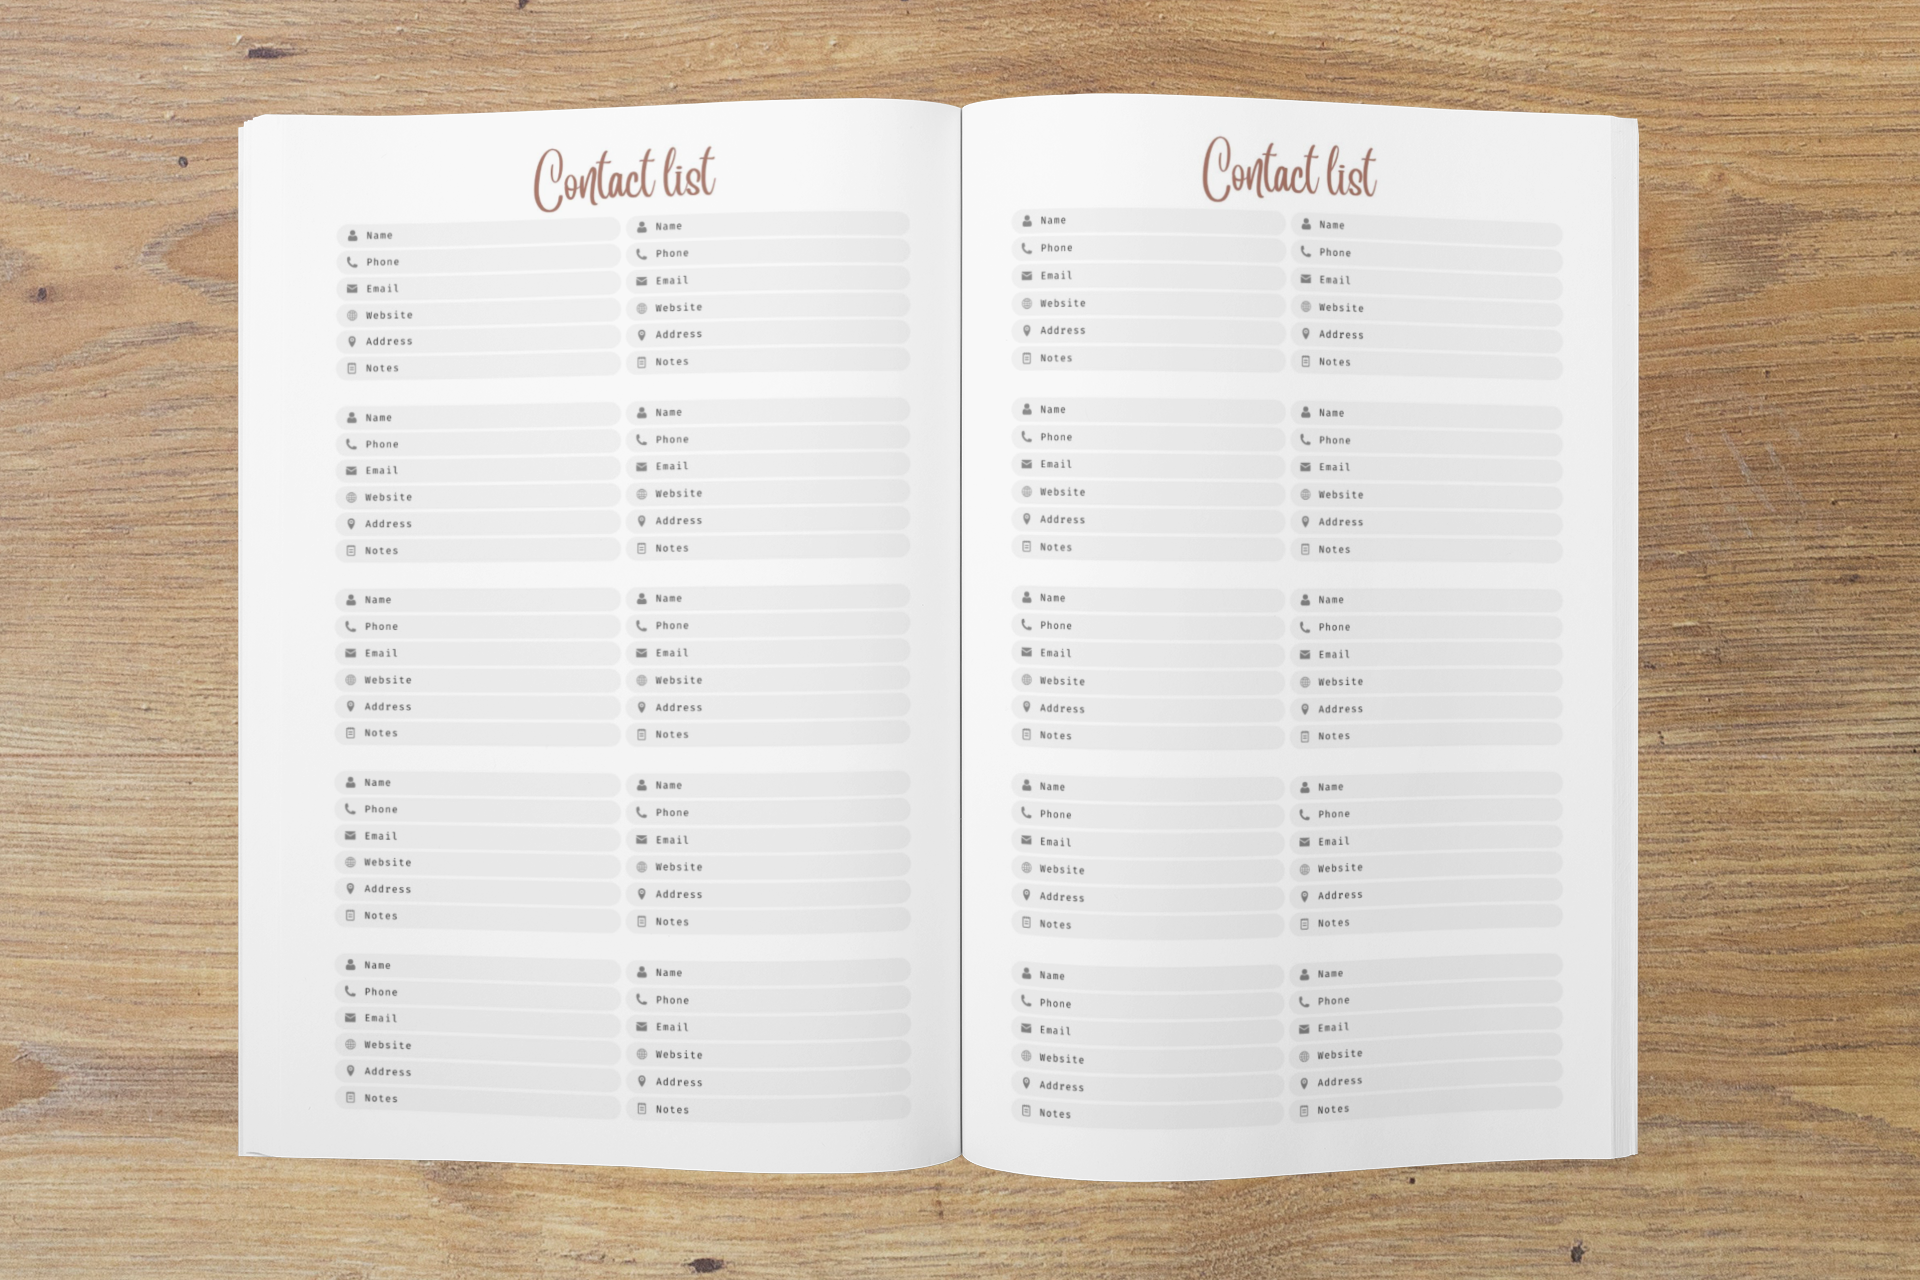 Contact list
Name
Phone
Email
Website
Address
Notes
Name
Phone
Email
Website
Address
Notes
Name
Phone
Email
Website
Address
Notes
Name
Phone
Email
Website
Address
Notes
Name
Phone
Email
Website
Address
Notes
Name
Phone
Email
Website
Address
Notes
Name
Phone
Email
Website
Address
Notes
Name
Phone
Email
Website
Address
Notes
Name
Phone
Email
Website
Address
Notes
Name
Phone
Email
Website
Address
Notes
Contact list
Name
Phone
Email
Website
Address
Notes
Name
Phone
Email
Website
Address
Notes
Name
Phone
Email
Website
Address
Notes
Name
Phone
Email
Website
Address
Notes
Name
Phone
Email
Website
Address
Notes
Name
Phone
Email
Website
Address
Notes
Name
Phone
Email
Website
Address
Notes
Name
Phone
Email
Website
Address
Notes
Name
Phone
Email
Website
Address
Notes
Name
Phone
Email
Website
Address
Notes